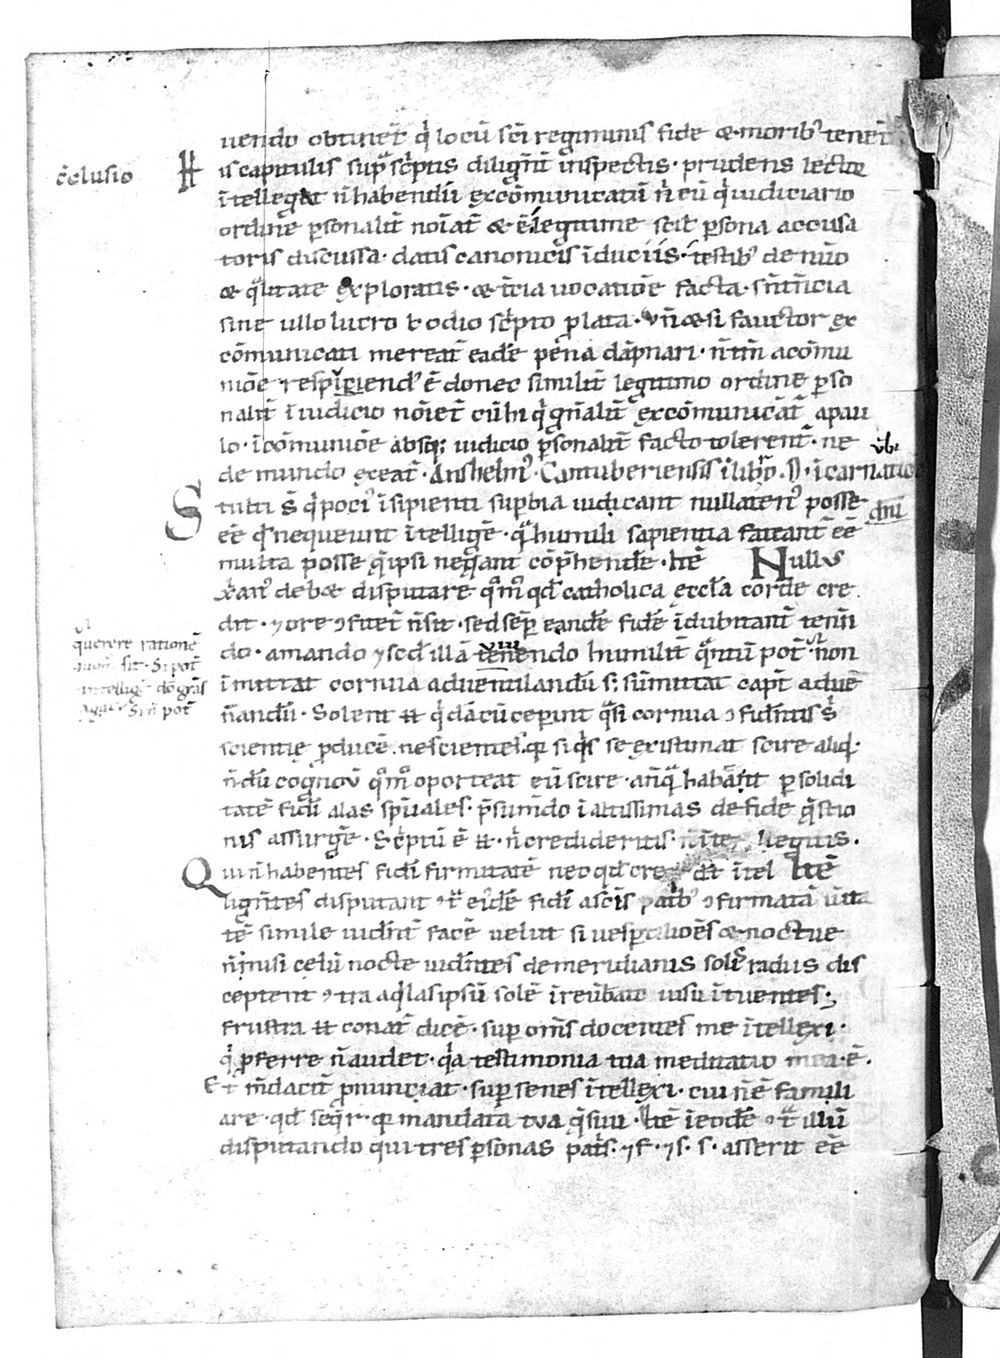 uendo obtinet̄ q̇ locū sc̄i regiminis fide & morib; tenet̄
c̄clusio
His capitulis sup̄sc̄ptis diligent̄ inspectis · prudens lector
ītellegat n̄ habendū excōmunicatū n̄ eū q̇ iudiciario
ordine p̄sonalit̄ noīat̄ & ē legitime scil̄ p̄sona accusa
toris discussa · datis canonicis īduciis · testib; de nūo
& q̄litate exploratis · & t̄cia uocatiōe facta · sn̄tn̄cia
sine ullo lucro ł odio sc̄pto p̄lata · vn̄ & si fauctor ex
cōmunicati mereat̄ eadē pena dāpnari · n̄ tn̄ a cōmu
niōe respiciend; ē donec similit̄ legitimo ordine p̄so
nalit̄ ī iudicio noīet̄ cū hi q̇ gn̄alit̄ excōmunicāt̄ apau
lo · ī cōmuniōe absq; iudicio p̄sonalit̄ facto tolerent̄ · ne
de mundo exeat̄ · Anshelm; Cantuberiensis ī lib̄o · ī carnatiōe
u͛bi
dn̄i
Stulti s̄ q̇ poci; īsipienti sup̄bia iudicant nullaten; posse
eē qd̄ nequeunt ītelligē · q̄ humili sapientia fateant̄ eē
multa posse q̄ ipsi neq̄ant cōp̄hendē · Itē Nullus
xp̄ian; debet disputare q̊m̊ qd̄ catholica eccl̄a corde cre
dit · ⁊ ore ꝯfitet̄ n̄ sit · sed sēp eandē fidē īdubitant̄ tenn̄
do · amando ⁊ scd̄ illā uiuendo humilit̄ q̄ntū pot̄ · non
querere rationē
quom̊ sit · Si pot̄
intelligē · dō grās
agat · Si n̄ pot̄
īmittat cornua ad uentilandū s; sūmittat capt̄ ad uen̄
n̄andū · Solent  q̇dā cū ceperint q̄si cornua ꝯfidn̄tis s̄
scientie p̄ducē nescientes · q; si q̇s se existimat scire aliq̄
n̄dū cognou̅ q̊m̊ oporteat eū scire · an̄q̄ habāt̄ p̄ solidi
tatē fidī alas sp̄uales · p̄sumn̄do ī altissimas de fide q̄stio
nis assurgē · Sc̄ptū ē · n̄ credideritis · n̄ ītellegetis ·
Qui n̄ habentes fidī firmitatē neq̄ qd̄ credit ītel Itē
ligntes disputant ꝯt̄ ei;dē fidī a sc̄is patrib; ꝯfirmatā uita
tē simile uidēt̄ facē uelut si uesp̄tiliōes & noctue
n̄ nisi celū nocte uidn̄tes de meridianis solis radiis dis
ceptent ꝯtra aq̄las ipsū solē irreūb̄ato uisu ītuentes ·
frustra  conat̄ dicē · sup om̄s docentes me ītellexi ·
q̇ p̄ferre n̄ audet · q̇a testimonia tua meditatio mea ē ·
Et m̄dacit̄ p̄nunciat · sup senes ītellexi · cui n̄ ē famili
are · qd̄ seq̄r · q; mandata tua q̄siui · Itē ī eodē ꝯt̄ illū
disputando qui tres p̄sonas pat̄s · ⁊ f · ⁊ s · s · asserit eē